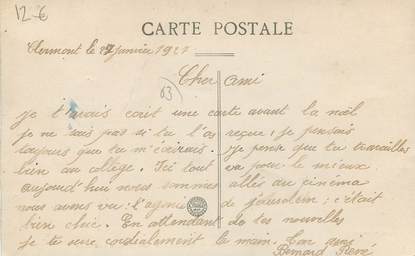 12 €
CARTE POSTALE
Clermont le 27 janvier 1921
Cher ami
63
je t'avais écrit une carte avant la noël
je ne sais pas si tu l'as reçue; je pensais
toujours que tu m'écrirais. Je pense que tu travailles
bien au collège. Ici tout va pour le mieux
aujourd'hui nous sommes allés au cinéma
nous avons vu: l'agonie de jérusalem; c'était
bien chic. En attendant de tes nouvelles
je te serre cordialement la main. Ton ami
Bernard René